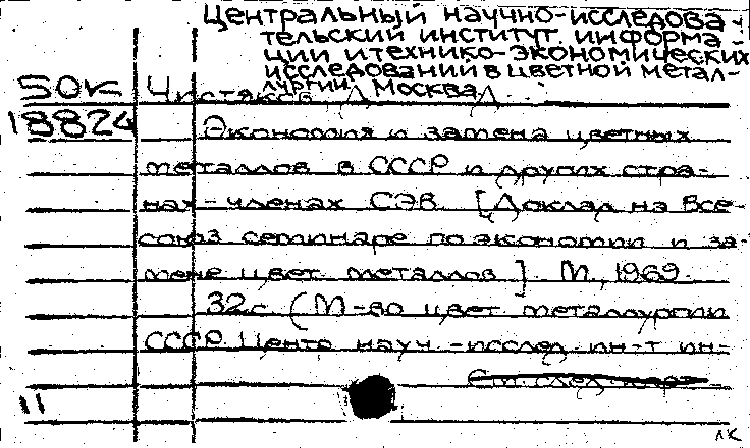 Центральный научно-исследова-
тельский институт информа-
ции и технико-экономических
исследований в цветной метал-
лургии, Москва
50к Чистяков, Д.
18824
Экономия и замена цветных
металлов в СССР и других стра-
нах-членах СЭВ. [Доклад на Все-
союз семинаре по экономии и за-
мене цвет. металлов]. М., 1969.
32 с. (М-во цвет. металлургии
СССР. Центр. науч.-исслед. ин-т ин-
См. след. карт.
11